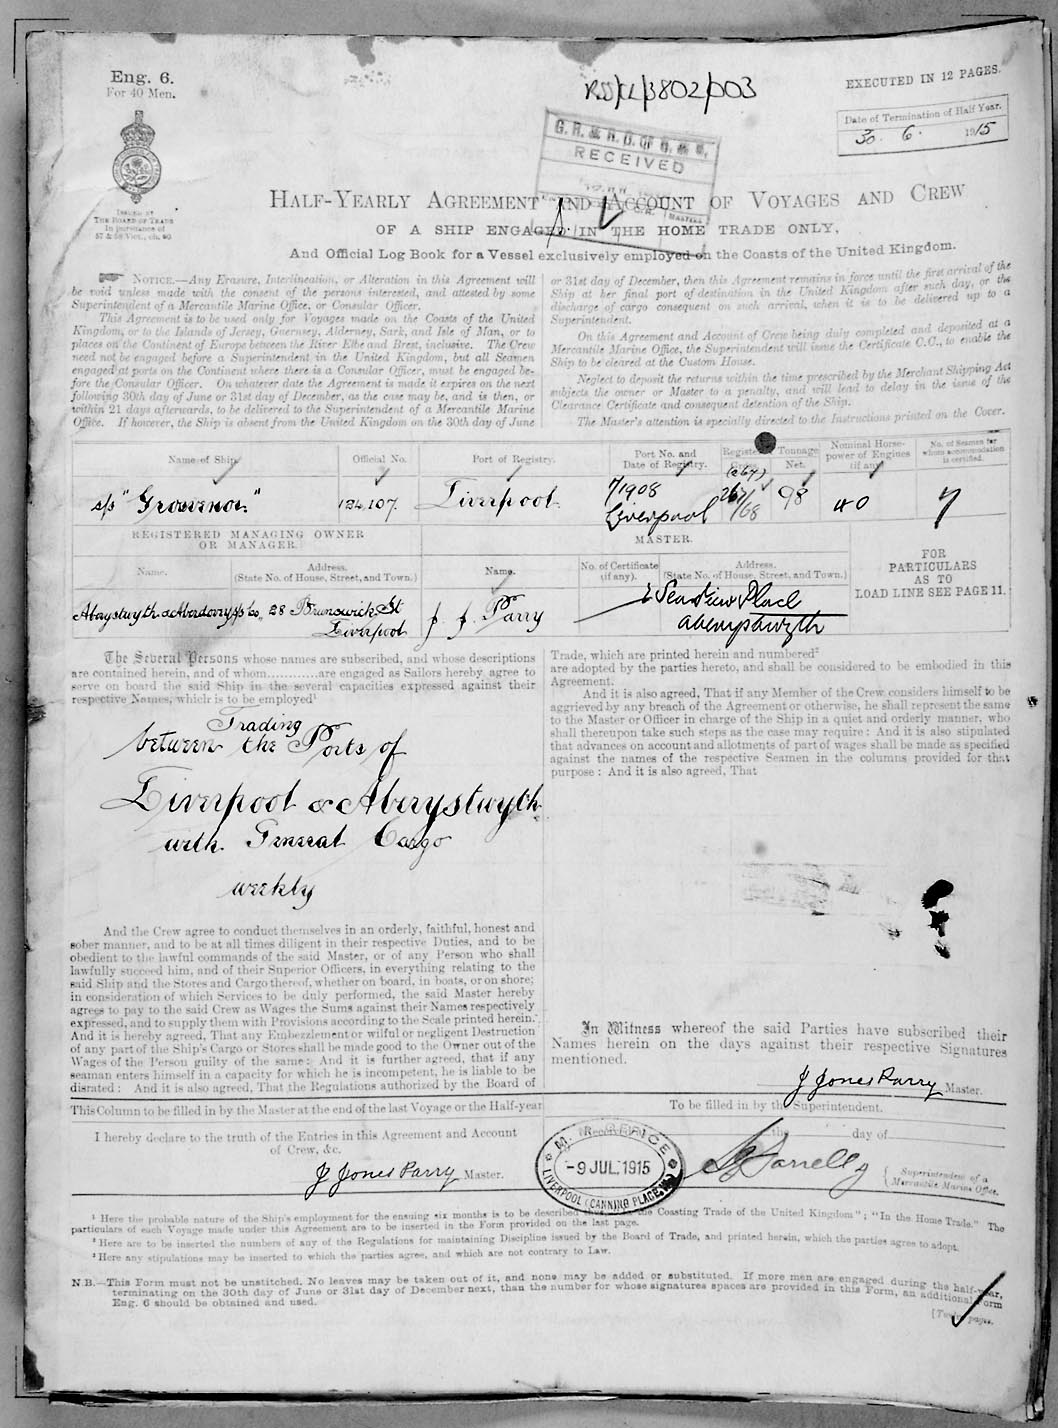 Eng. 6.
For 40 Men.
RSS/CL/3802/003
EXECUTED IN 12 PAGES.
Date of Termination of Half Year.
30. 6. 1915
ISSUED BY
THE BOARD OF TRADE
In pursuance of
57 & 58 Vict., ch. 60
RECEIVED
HALF-YEARLY AGREEMENT AND ACCOUNT OF VOYAGES AND CREW
OF A SHIP ENGAGED IN THE HOME TRADE ONLY,
And Official Log Book for a Vessel exclusively employed on the Coasts of the United Kingdom.
NOTICE.—Any Erasure, Interlineation, or Alteration in this Agreement will
be void unless made with the consent of the persons interested, and attested by some
Superintendent of a Mercantile Marine Office, or Consular Officer.
This Agreement is to be used only for Voyages made on the Coasts of the United
Kingdom, or to the Islands of Jersey, Guernsey, Alderney, Sark, and Isle of Man, or to
places on the Continent of Europe between the River Elbe and Brest, inclusive. The Crew
need not be engaged before a Superintendent in the United Kingdom, but all Seamen
engaged at ports on the Continent where there is a Consular Officer, must be engaged be-
fore the Consular Officer. On whatever date the Agreement is made it expires on the next
following 30th day of June or 31st day of December, as the case may be, and is then, or
within 21 days afterwards, to be delivered to the Superintendent of a Mercantile Marine
Office. If however, the Ship is absent from the United Kingdom on the 30th day of June
or 31st day of December, then this Agreement remains in force until the first arrival of the
Ship at her final port of destination in the United Kingdom after such day, or the
discharge of cargo consequent on such arrival, when it is to be delivered up to a
Superintendent.
On this Agreement and Account of Crew being duly completed and deposited at a
Mercantile Marine Office, the Superintendent will issue the Certificate C.C., to enable the
Ship to be cleared at the Custom House.
Neglect to deposit the returns within the time prescribed by the Merchant Shipping Act
subjects the owner or Master to a penalty, and will lead to delay in the issue of the
Clearance Certificate and consequent detention of the Ship.
The Master's attention is specially directed to the Instructions printed on the Cover.
Name of Ship.
Official No.
Port of Registry.
Port No. and
Date of Registry.
Registered Tonnage
Net.
Nominal Horse-
power of Engines
(if any)
No. of Seamen for
whom accommodation
is certified.
s/s "Grosvenor"
124,107.
Liverpool
7/1908
Liverpool
(267)
267/68
98
40
7
REGISTERED MANAGING OWNER
OR MANAGER.
MASTER.
FOR
PARTICULARS
AS TO
LOAD LINE SEE PAGE 11.
Name.
Address.
(State No. of House, Street, and Town.)
Name.
No. of Certificate
(if any).
Address.
(State No. of House, Street, and Town.)
Aberystwyth & Aberdovey s/s Co., 28 Brunswick St
Liverpool
J. J. Parry
1 Seaview Place
Aberystwyth
The Several Persons whose names are subscribed, and whose descriptions
are contained herein, and of whom............are engaged as Sailors hereby agree to
serve on board the said Ship in the several capacities expressed against their
respective Names, which is to be employed¹
Trading
between the Ports of
Liverpool & Aberystwyth
with General Cargo
weekly
And the Crew agree to conduct themselves in an orderly, faithful, honest and
sober manner, and to be at all times diligent in their respective Duties, and to be
obedient to the lawful commands of the said Master, or of any Person who shall
lawfully succeed him, and of their Superior Officers, in everything relating to the
said Ship and the Stores and Cargo thereof, whether on board, in boats, or on shore;
in consideration of which Services to be duly performed, the said Master hereby
agrees to pay to the said Crew as Wages the Sums against their Names respectively
expressed, and to supply them with Provisions according to the Scale printed herein.
And it is hereby agreed, That any Embezzlement or wilful or negligent Destruction
of any part of the Ship's Cargo or Stores shall be made good to the Owner out of the
Wages of the Person guilty of the same: And it is further agreed, that if any
seaman enters himself in a capacity for which he is incompetent, he is liable to be
disrated: And it is also agreed, That the Regulations authorized by the Board of
Trade, which are printed herein and numbered²
are adopted by the parties hereto, and shall be considered to be embodied in this
Agreement.
And it is also agreed, That if any Member of the Crew considers himself to be
aggrieved by any breach of the Agreement or otherwise, he shall represent the same
to the Master or Officer in charge of the Ship in a quiet and orderly manner, who
shall thereupon take such steps as the case may require: And it is also stipulated
that advances on account and allotments of part of wages shall be made as specified
against the names of the respective Seamen in the columns provided for that
purpose: And it is also agreed, That
In Witness whereof the said Parties have subscribed their
Names herein on the days against their respective Signatures
mentioned.
J Jones Parry Master.
This Column to be filled in by the Master at the end of the last Voyage or the Half-year
To be filled in by the Superintendent.
I hereby declare to the truth of the Entries in this Agreement and Account
of Crew, &c.
J Jones Parry Master.
M. M. OFFICE
-9 JUL. 1915
LIVERPOOL (CANNING PLACE)
the day of
Farrelly
Superintendent of a
Mercantile Marine Office.
¹ Here the probable nature of the Ship's employment for the ensuing six months is to be described the Coasting Trade of the United Kingdom"; "In the Home Trade." The
particulars of each Voyage made under this Agreement are to be inserted in the Form provided on the last page.
² Here are to be inserted the numbers of any of the Regulations for maintaining Discipline issued by the Board of Trade, and printed herein, which the parties agree to adopt.
³ Here any stipulations may be inserted to which the parties agree, and which are not contrary to Law.
N.B.—This Form must not be unstitched. No leaves may be taken out of it, and none may be added or substituted. If more men are engaged during the half-year,
terminating on the 30th day of June or 31st day of December next, than the number for whose signatures spaces are provided in this Form, an additional Form
Eng. 6 should be obtained and used.
[Twelve pages.